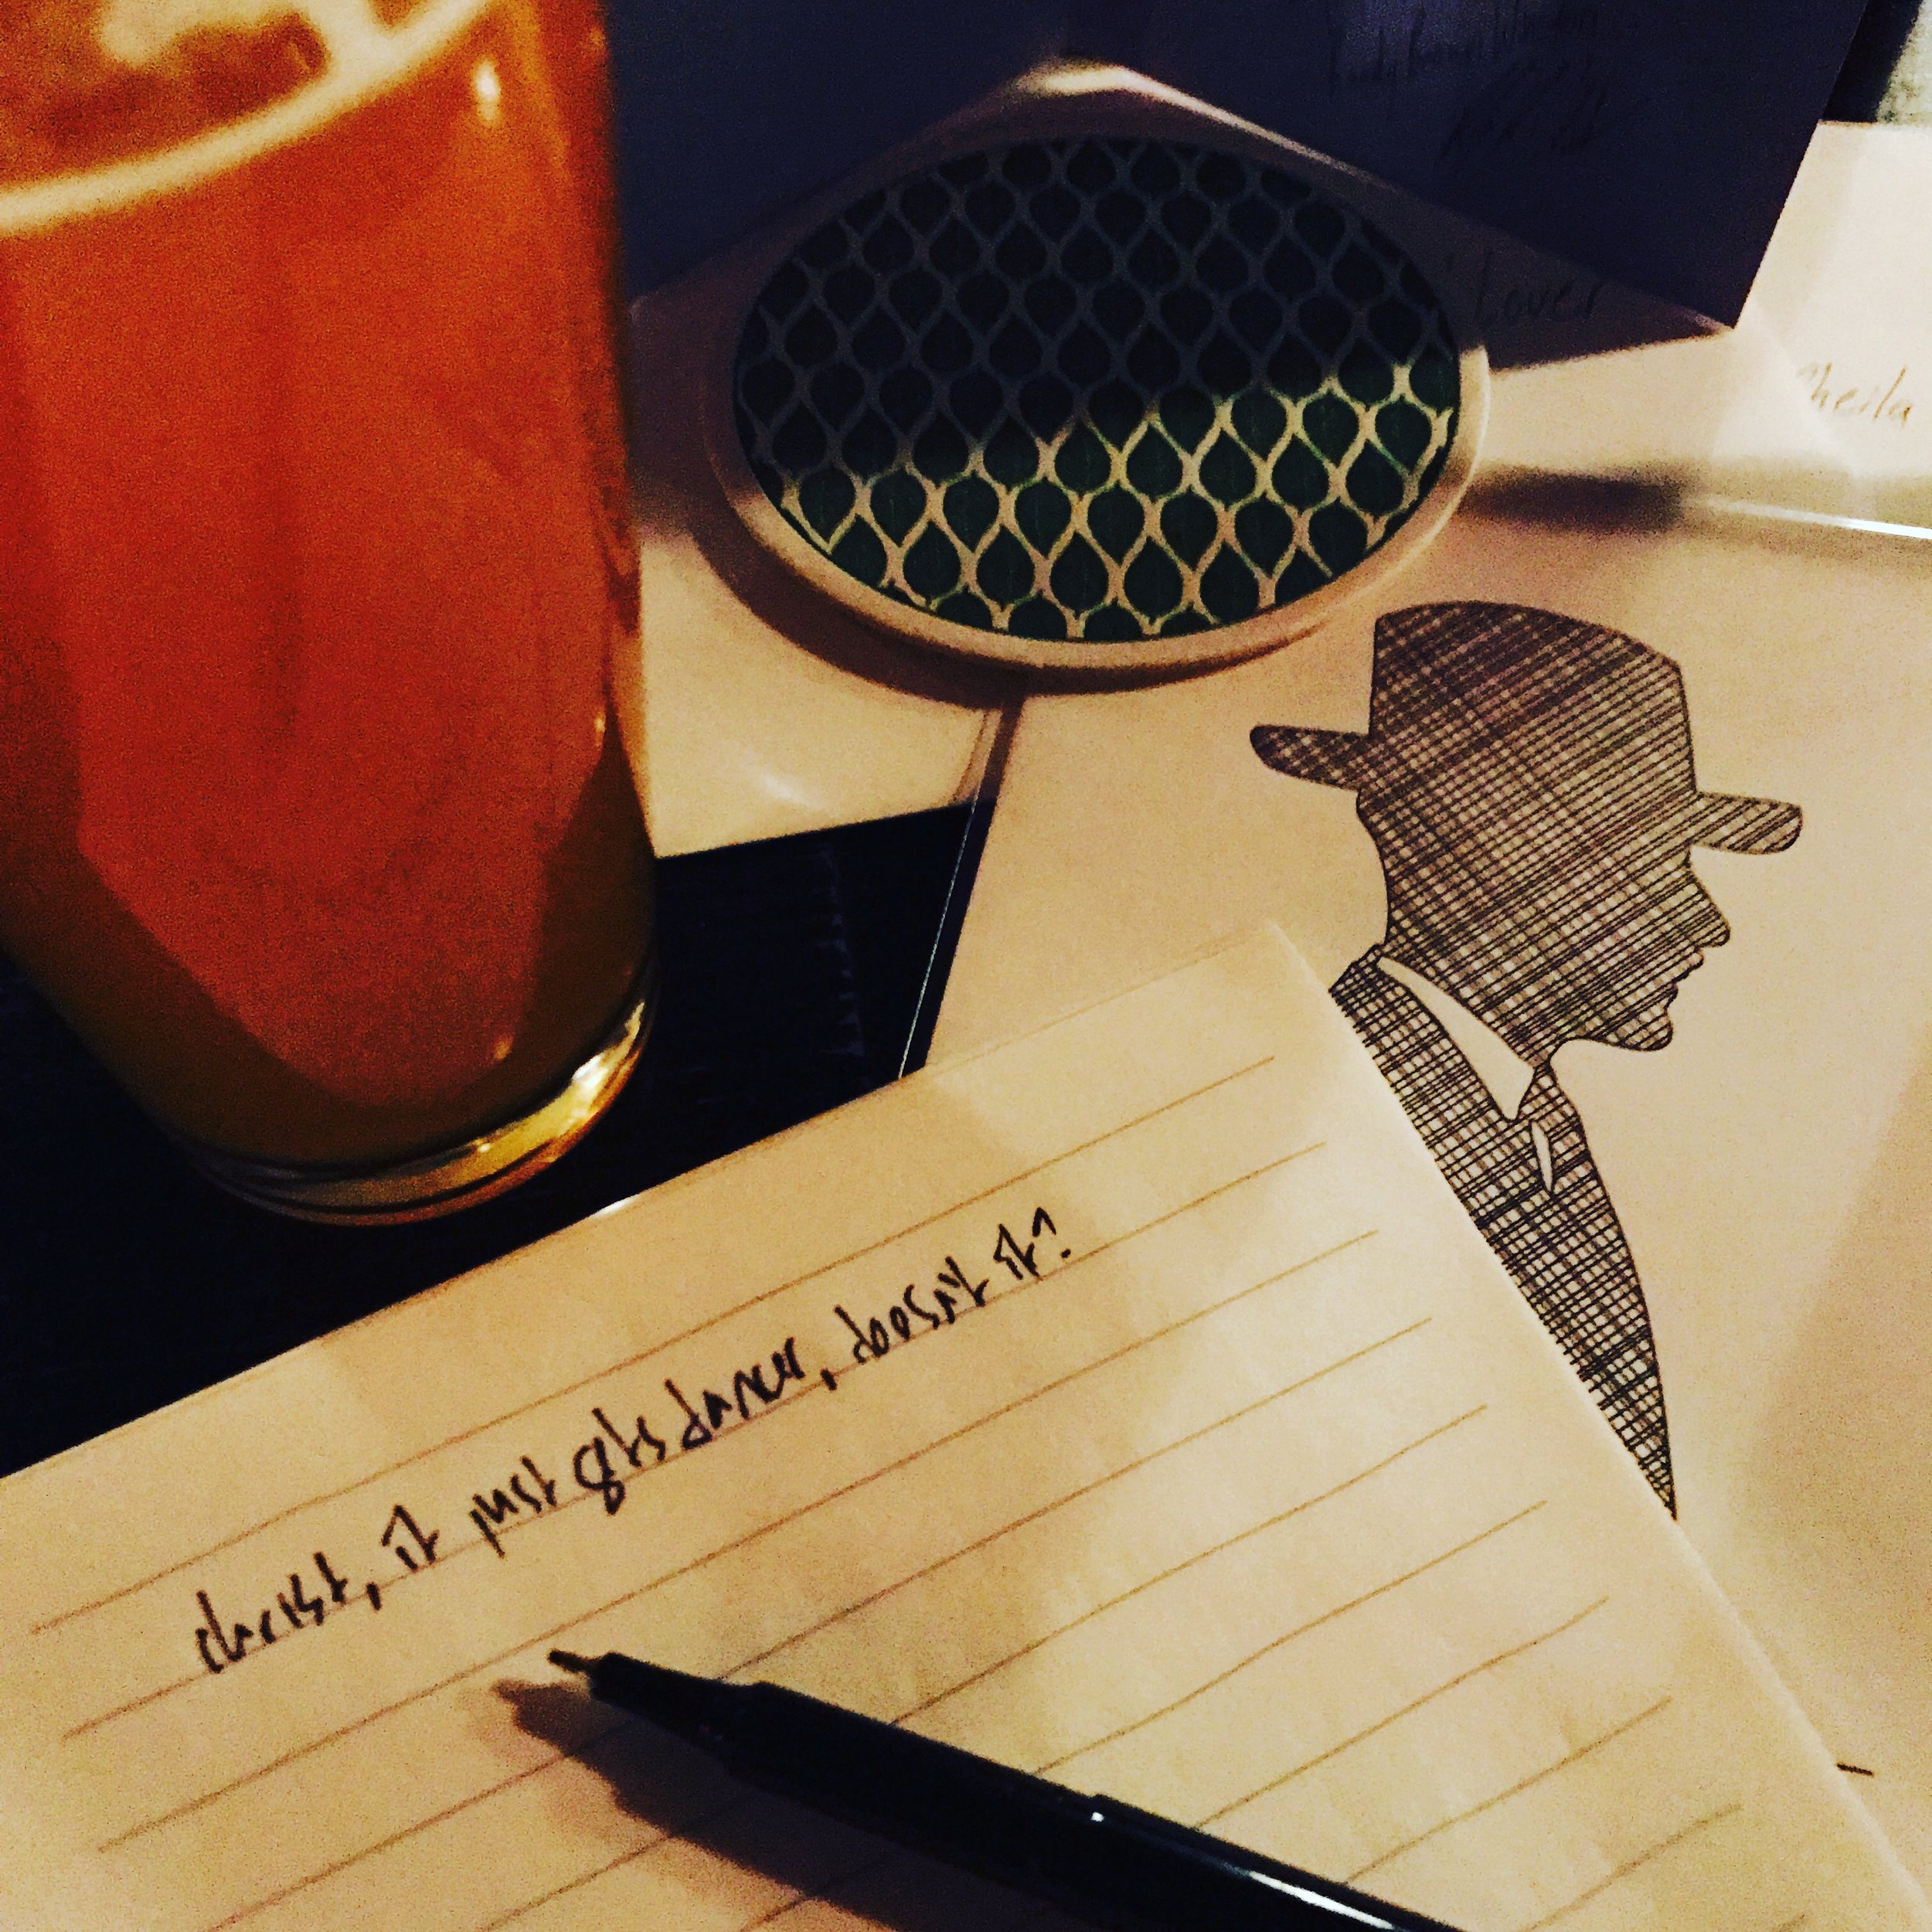 Lover
Sheila
christ, it just gets darker, doesn't it?